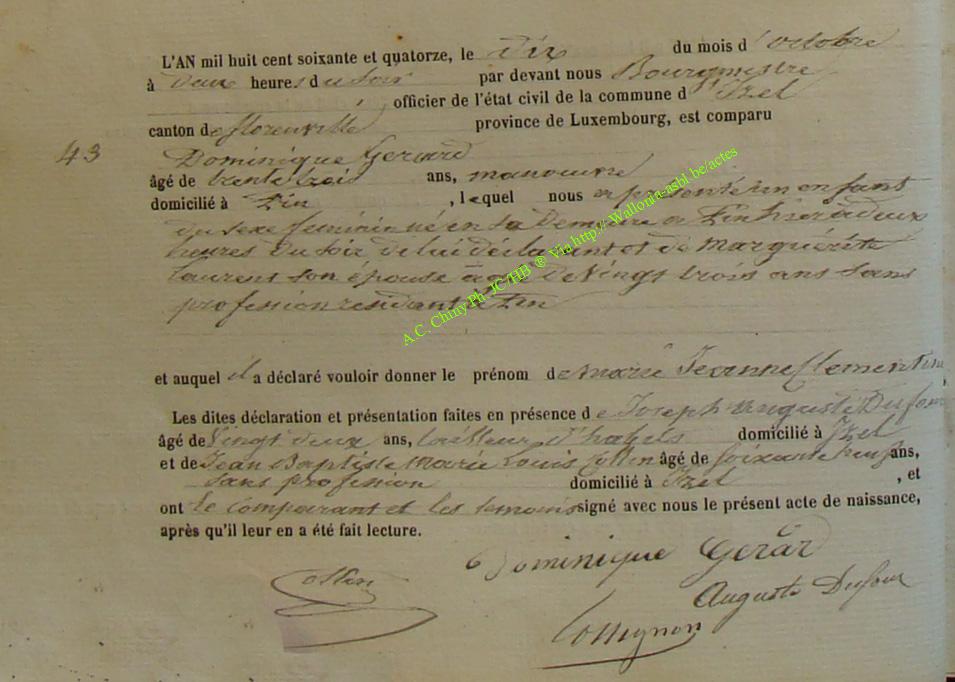 L'AN mil huit cent soixante et quatorze, le dix du mois d'octobre
à deux heures du soir par devant nous Bourgmestre
officier de l'état civil de la commune d'Izel
canton de florenville province de Luxembourg, est comparu
43
Dominique Gerard
âgé de trente trois ans, manoeuvre
domicilié à Pin, lequel nous a présenté un enfant
du sexe féminin né en sa Demeure a Pin hier à deux
heures Du soir de lui déclarant et de Marguérite
Laurent son épouse agée De Vingt trois ans sans
profession residant à Pin
et auquel il a déclaré vouloir donner le prénom de Marie Jeanne Clementine
Les dites déclaration et présentation faites en présence de Joseph Auguste Dufour
âgé de Vingt deux ans, tailleur d'habits domicilié à Izel
et de Jean Baptiste Marie Louis Collin âgé de soixante neuf ans,
sans profession domicilié à Izel, et
ont le comparant et les temoins signé avec nous le présent acte de naissance,
après qu'il leur en a été fait lecture.
Dominique Geràr
Collin
Auguste Dufour
Collignon
A.C. Chiny Ph. JC/HB ® Via http:// Wallonia-asbl.be/actes